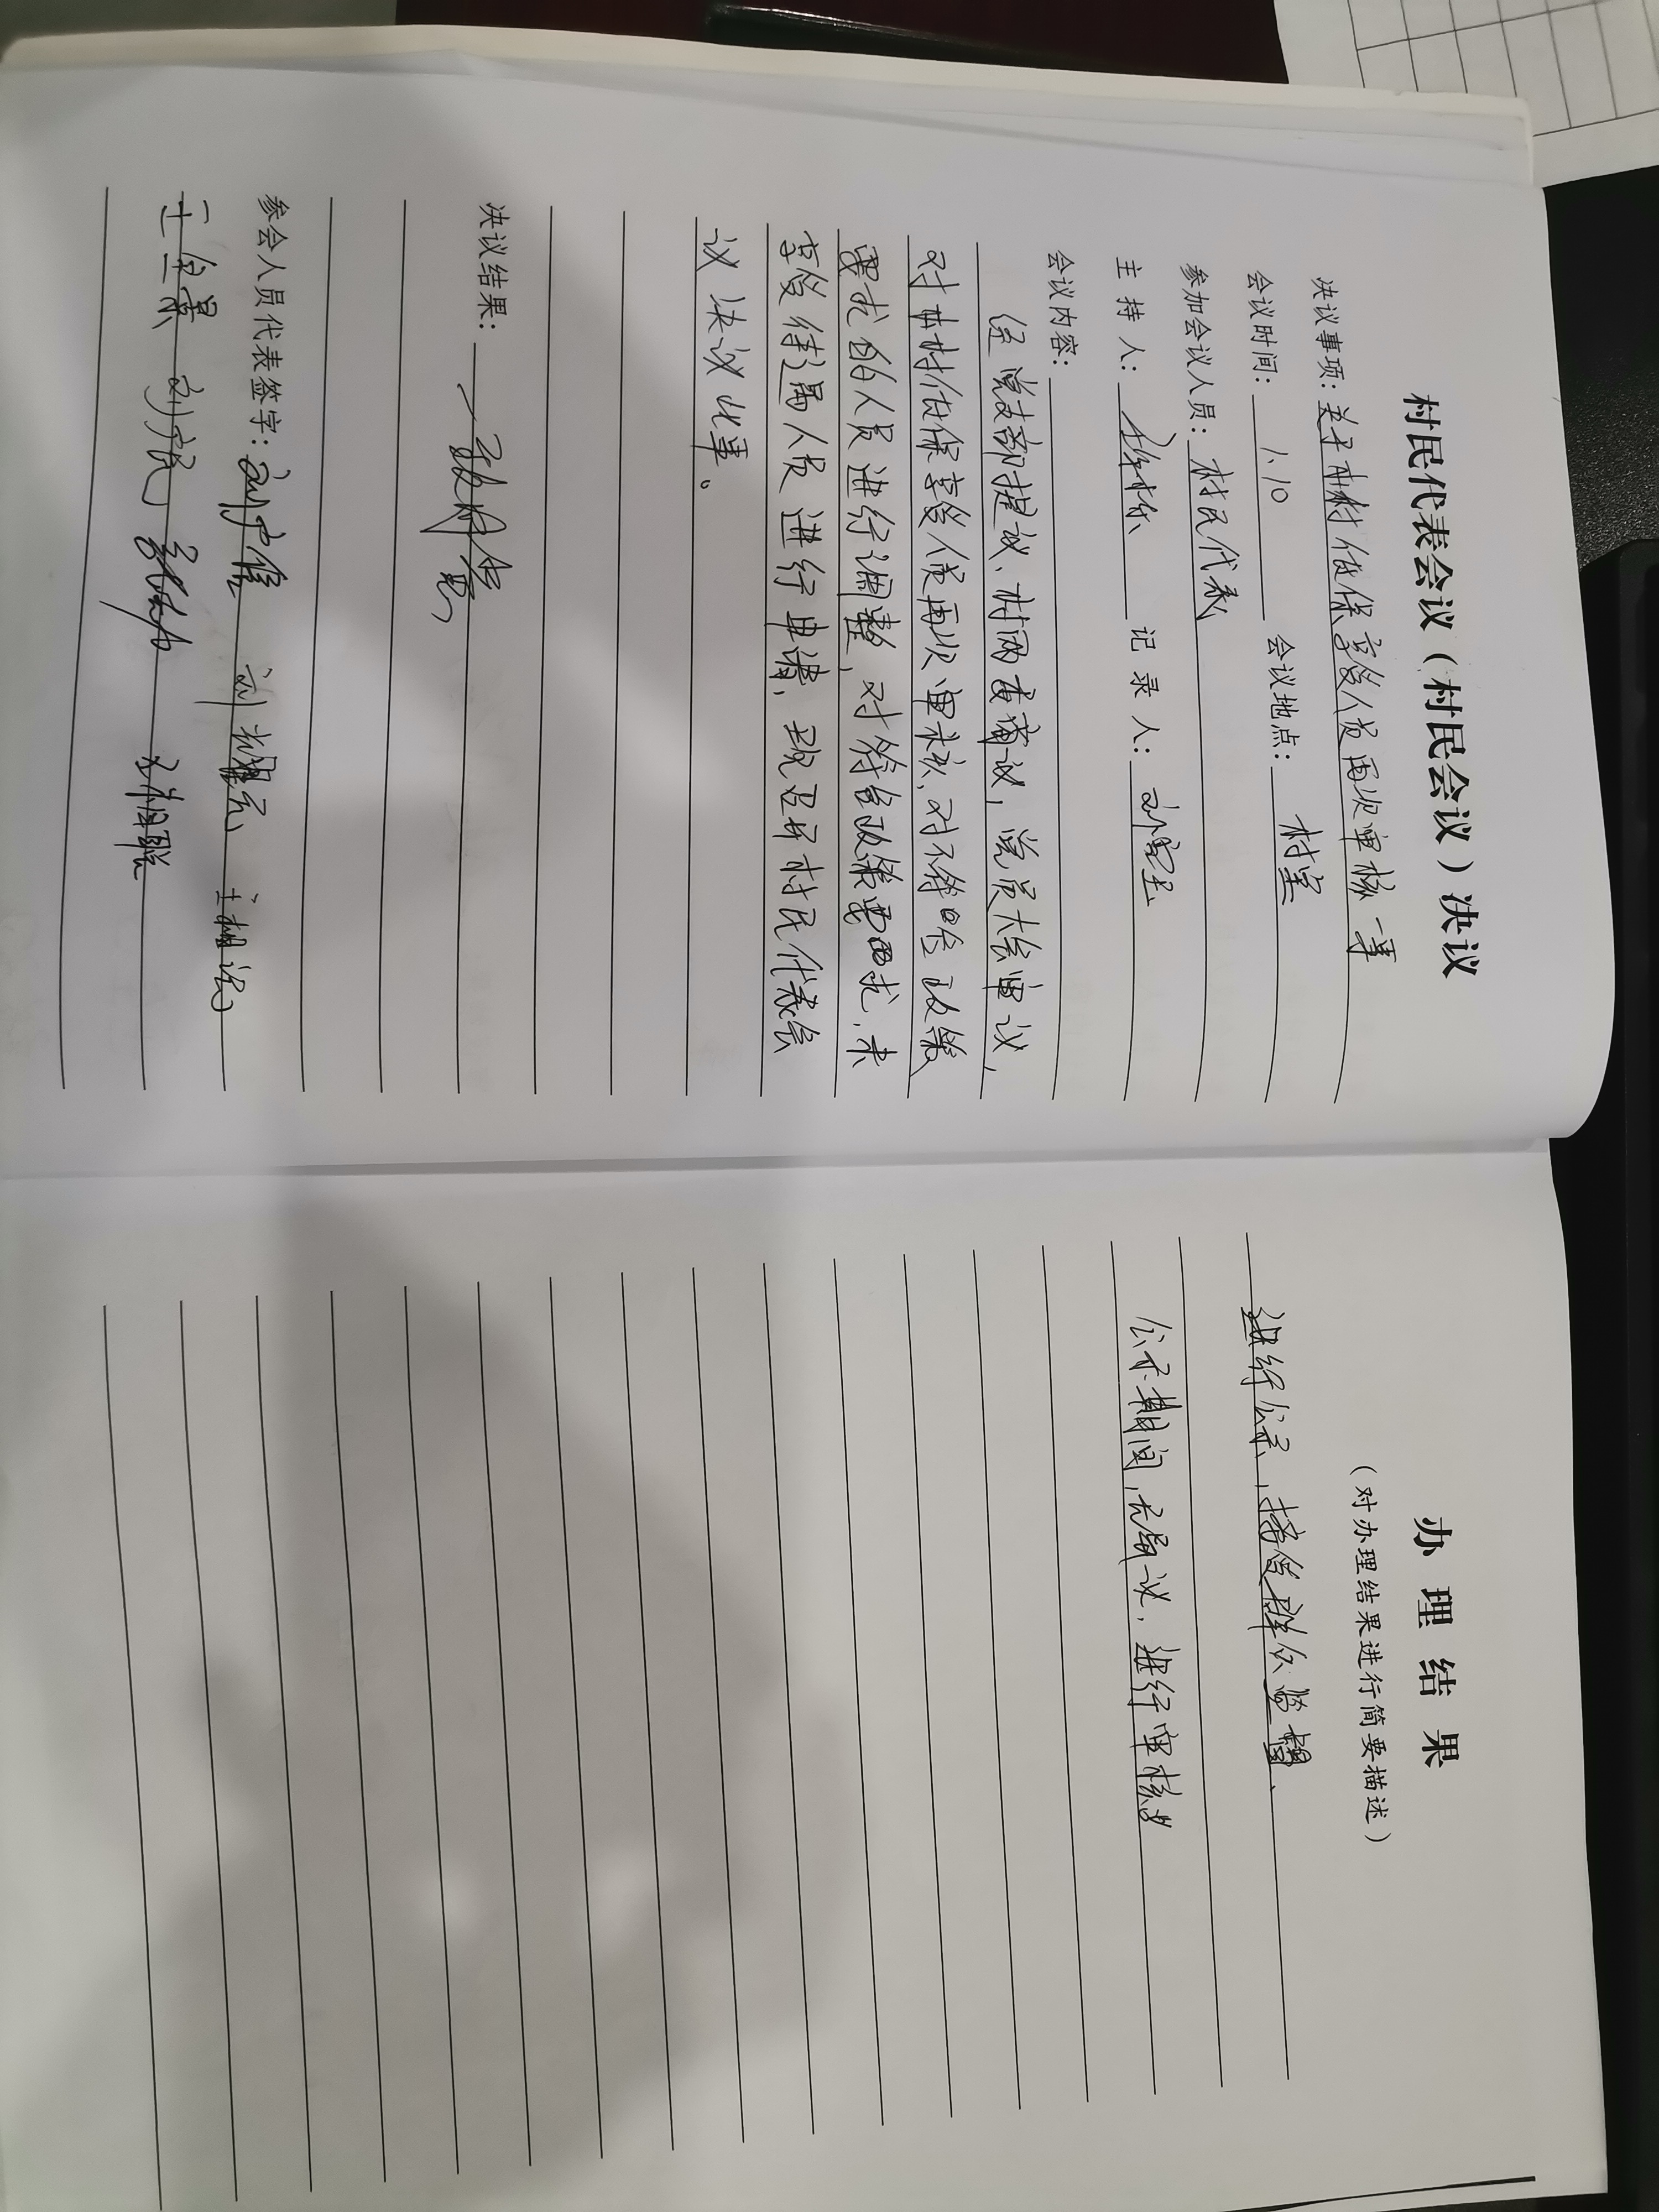 村民代表会议（村民会议）决议
决议事项：关于本村低保享受人员再次审核一事
会议时间：1.10 会议地点：村室
参加会议人员：村民代表
主持人： 记录人：刘雪玉
会议内容：
经党支部提议、村两委商议，党员大会审议，
对本村低保享受人员再次审核、对不符合政策
要求的人员进行调整，对符合政策要求，未
享受待遇人员进行申请，现召开村民代表会
议决议此事。
决议结果：一致同意
参会人员代表签字：刘户信 刘耀元 王相法
王金景 刘户民 王相联
办理结果
（对办理结果进行简要描述）
进行公示，接受群众监督.
公示期间，无异议，进行审核